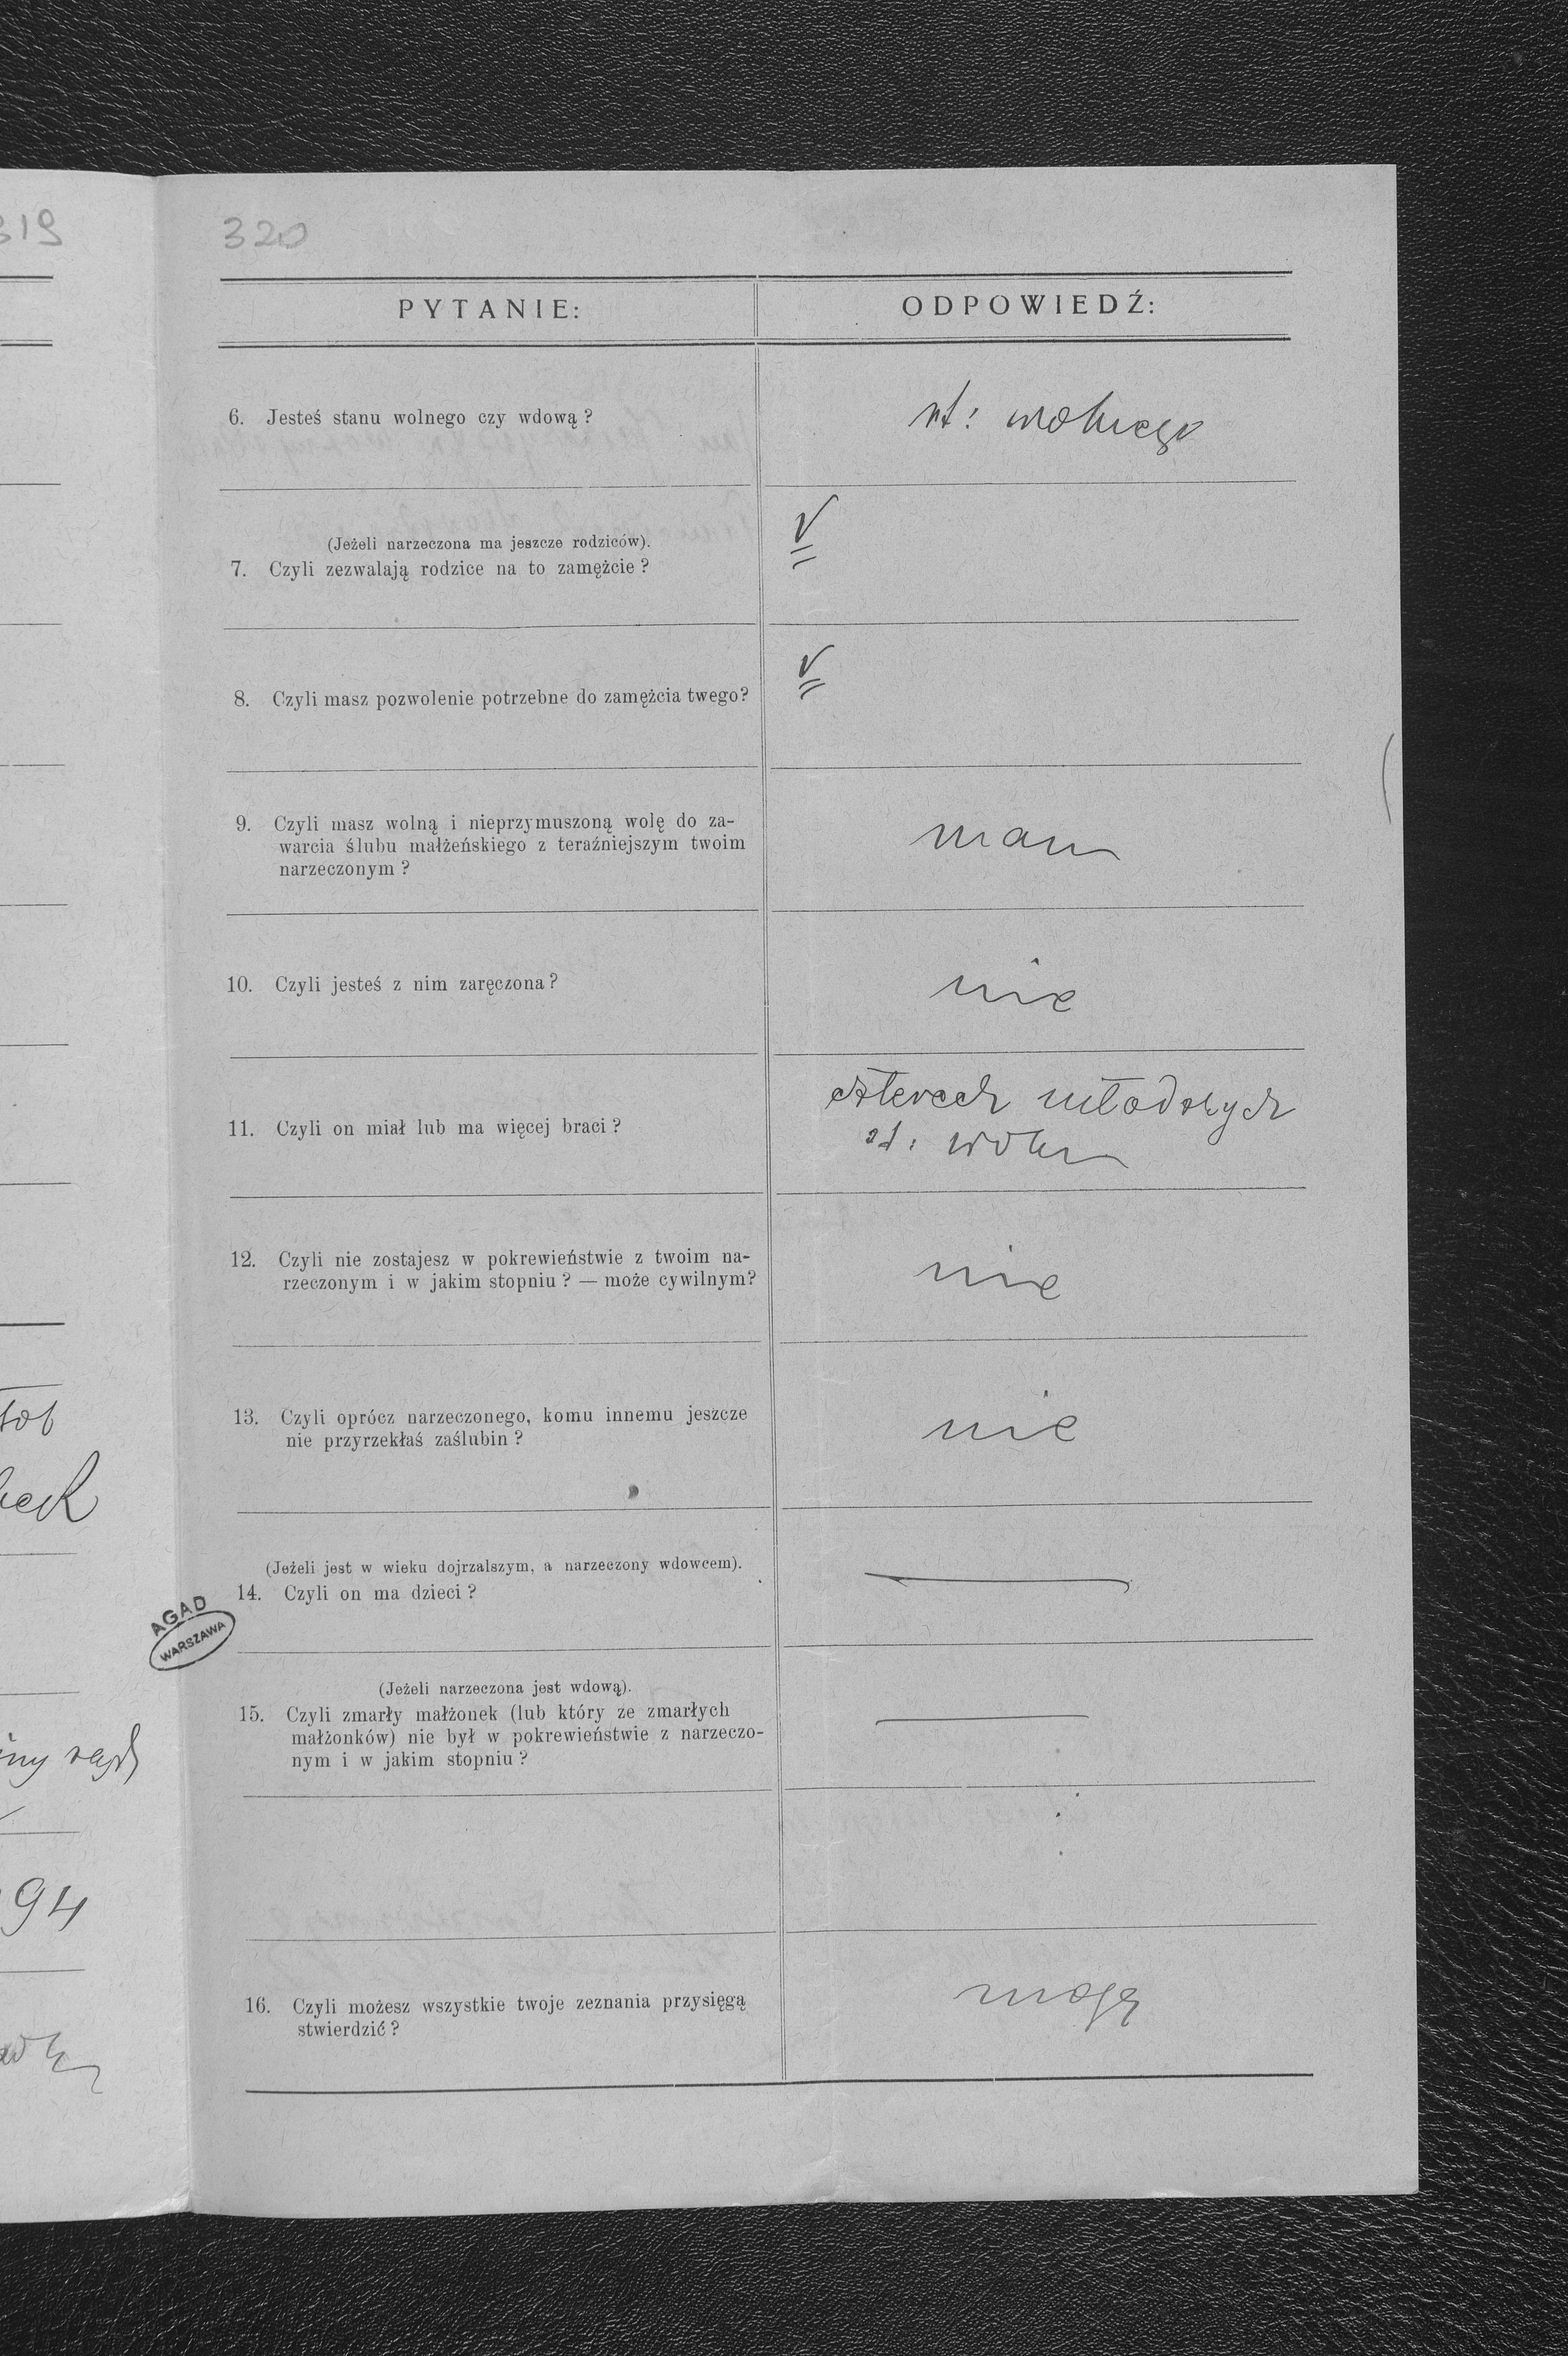 319
320
PYTANIE:
ODPOWIEDŹ:
6. Jesteś stanu wolnego czy wdową?
st: wolnego
(Jeżeli narzeczona ma jeszcze rodziców).
7. Czyli zezwalają rodzice na to zamężcie?
8. Czyli masz pozwolenie potrzebne do zamężcia twego?
9. Czyli masz wolną i nieprzymuszoną wolę do za-
warcia ślubu małżeńskiego z teraźniejszym twoim
narzeczonym?
mam
10. Czyli jesteś z nim zaręczona?
nie
11. Czyli on miał lub ma więcej braci?
czterech młodszych
st: woln
12. Czyli nie zostajesz w pokrewieństwie z twoim na-
rzeczonym i w jakim stopniu? — może cywilnym?
nie
13. Czyli oprócz narzeczonego, komu innemu jeszcze
nie przyrzekłaś zaślubin?
nie
(Jeżeli jest w wieku dojrzalszym, a narzeczony wdowcem).
14. Czyli on ma dzieci?
AGAD
WARSZAWA
(Jeżeli narzeczona jest wdową).
15. Czyli zmarły małżonek (lub który ze zmarłych
małżonków) nie był w pokrewieństwie z narzeczo-
nym i w jakim stopniu?
94
16. Czyli możesz wszystkie twoje zeznania przysięgą
stwierdzić?
mogę